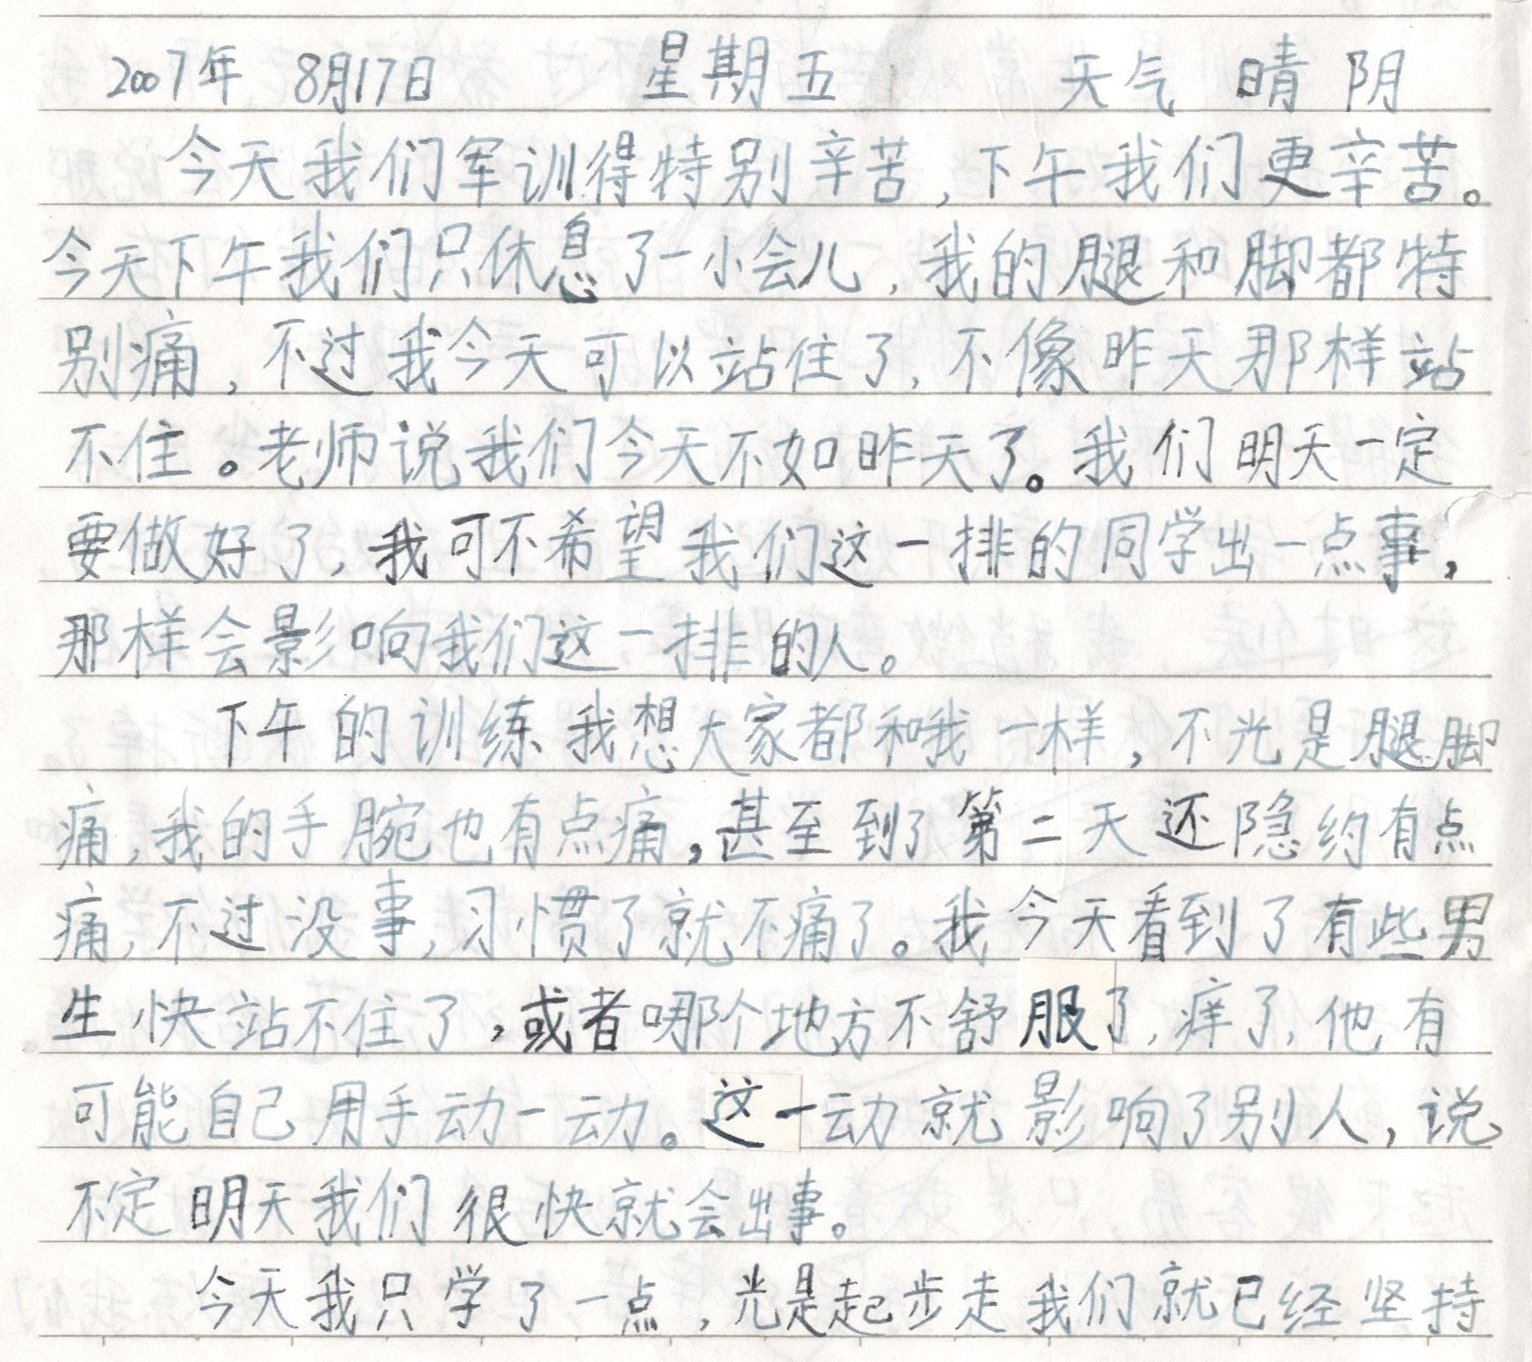 2007年 8月17日 星期五 天气 晴 阴
今天我们军训得特别辛苦,下午我们更辛苦。
今天下午我们只休息了一小会儿,我的腿和脚都特
别痛,不过我今天可以站住了,不像昨天那样站
不住。老师说我们今天不如昨天了。我们明天一定
要做好了,我可不希望我们这一排的同学出一点事,
那样会影响我们这一排的人。
下午的训练我想大家都和我一样,不光是腿脚
痛,我的手腕也有点痛,甚至到了第二天还隐约有点
痛,不过没事,习惯了就不痛了。我今天看到了有些男
生快站不住了,或者哪个地方不舒服了,痒了,他有
可能自己用手动一动。这一动就影响了别人,说
不定明天我们很快就会出事。
今天我只学了一点,光是起步走我们就已经坚持